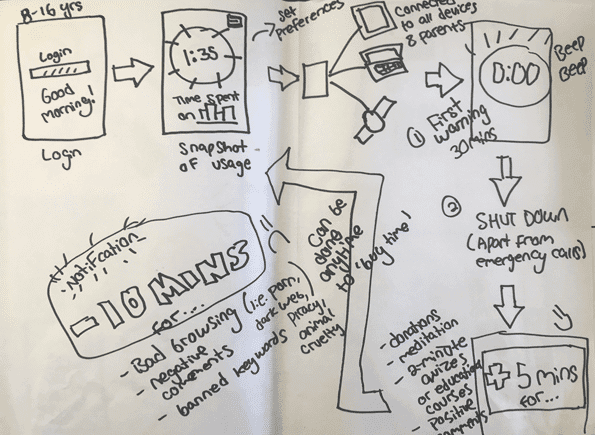 8-16 yrs
Login
Good
Morning!
Login
1:35
Time Spent
on
Snapshot
of usage
set
preferences
Connected
to all devices
& parents
0:00
BEEP
BEEP
① First
warning
30 mins
② SHUT DOWN
(Apart from
emergency calls)
+ 5 mins
for...
- donations
- meditation
- 2-minute
quizes
or education
courses
- positive
comments
Can be
done
anytime
to 'buy time'
Notification
- 10 MINS
for...
- Bad browsing (i.e. porn,
dark web,
piracy,
animal
cruelty)
- negative
comments
- banned keywords